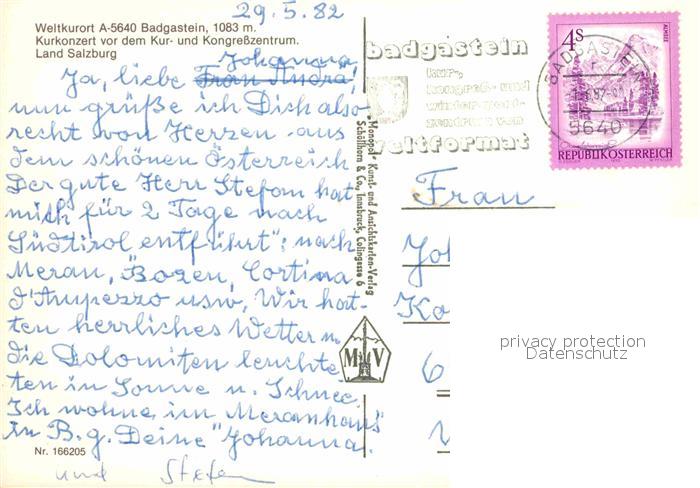 29.5.82
Weltkurort A-5640 Badgastein, 1083 m.
Kurkonzert vor dem Kur- und Kongreßzentrum.
Land Salzburg
Johanna,
Ja, liebe Frau Andra!
nun grüße ich Dich also
recht von Herzen aus
dem schönen Österreich
Der gute Herr Stefan hat
mich für 2 Tage nach
Südtirol "entführt": nach
Meran, Bozen, Cortina
d'Ampezzo usw. Wir hat-
ten herrliches Wetter u.
die Dolomiten leuchte-
ten in Sonne u. Schnee.
Ich wohne im "Meranhaus"
in B.g. Deine Johanna.
Nr. 166205
und Stefan
"Monopol" Kunst- und Ansichtskarten-Verlag
Schöllhorn & Co., Innsbruck, Colingasse 6
M V
badgastein
kur-,
kongreß- und
wintersport-
zentrum von
weltformat
BADGASTEIN
5640
4 S
ALMSEE
REPUBLIK ÖSTERREICH
Frau
Jo
Ka
6
privacy protection
Datenschutz